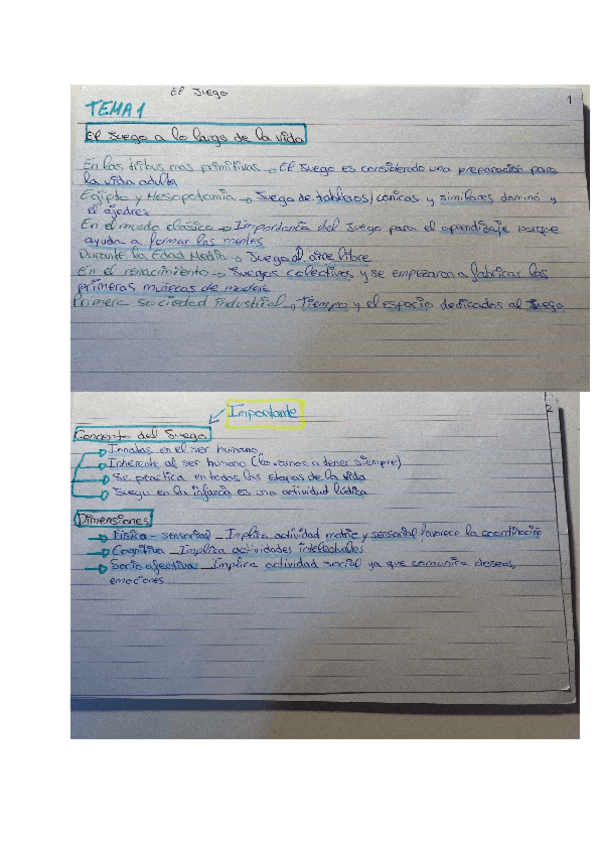 El Juego
1
TEMA 1
El Juego a lo largo de la vida
En las tribus mas primitivas → El Juego es considerado una preparación para
la vida adulta
Egipto y Mesopotamia → Juego de tableros/conicas y similares dominó y
el ajedrez
En el mundo clasico → Importancia del Juego para el aprendizaje porque
ayuda a formar las mentes
Durante la Edad Media → Juego al aire libre
En el renacimiento → Juegos colectivos y se empezaron a fabricar las
primeras muñecas de madera
Primera sociedad industrial → Tiempo y el espacio dedicados al Juego
2
Importante
Concepto del Juego
Innatas en el ser humano
Inherente al ser humano (lo vamos a tener siempre)
Se practica en todas las etapas de la vida
Juego en la infancia es una actividad lúdica
Dimensiones
Fisica - sensorial _ Implica actividad motriz y sensorial favorece la coordinación
Cognitiva _ Implica actividades intelectuales
Socio afectiva _ Implica actividad social ya que comunica deseos,
emociones